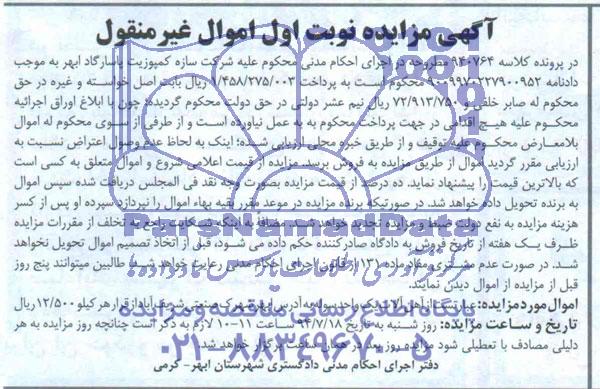 آگهی مزایده نوبت اول اموال غیر منقول
در پرونده کلاسه ۹۴۰۷۶۴ مطروحه در اجرای احکام مدنی محکوم علیه شرکت سازه کمپوزیت پاسارگاد ابهر به موجب
دادنامه ۹۰۹۹۷۰۲۲۷۹۰۰۹۵۲ محکوم است به پرداخت ۱/۴۵۸/۲۷۵/۰۰۳ ریال بابت اصل خواسته و غیره در حق
محکوم له صابر خلقی و ۷۲/۹۱۳/۷۵۰ ریال نیم عشر دولتی در حق دولت محکوم گردیده؛ چون با ابلاغ اوراق اجرائیه
محکوم علیه هیچ اقدامی در جهت پرداخت محکوم به به عمل نیاورده است و از طرفی از سوی محکوم له اموال
بلامعارض محکوم علیه توقیف و از طریق خبره محلی ارزیابی شده؛ اینک به لحاظ عدم وصول اعتراض نسبت به
ارزیابی مقرر گردید اموال از طریق مزایده به فروش برسد. مزایده از قیمت اعلامی شروع و اموال متعلق به کسی است
که بالاترین قیمت را پیشنهاد نماید. ده درصد از قیمت مزایده بصورت وجه نقد فی المجلس دریافت شده سپس اموال
به برنده تحویل داده خواهد شد. در صورتیکه برنده مزایده در موعد مقرر بقیه بهاء اموال را نپردازد سپرده او پس از کسر
هزینه مزایده به نفع دولت ضبط و مزایده تجدید خواهد شد. مضافاً به اینکه شکایت راجع به تخلف از مقررات مزایده
ظرف یک هفته از تاریخ فروش به دادگاه صادرکننده حکم داده می شود، قبل از اتخاذ تصمیم اموال تحویل نخواهد
شد. در صورت عدم مشتری مفاد ماده ۱۳۱ از قانون اجرای احکام مدنی رعایت خواهد شد. طالبین میتوانند پنج روز
قبل از مزایده از اموال دیدن نمایند.
اموال مورد مزایده: عبارتست از آهن آلات یک واحد سوله به آدرس ابهر شهرک صنعتی شریف آباد از قرار هر کیلو ۱۲/۵۰۰ ریال
تاریخ و ساعت مزایده: روز شنبه به تاریخ ۹۴/۷/۱۸ ساعت ۱۱-۱۰ لازم به ذکر است چنانچه روز مزایده به هر
دلیلی مصادف با تعطیلی شود مزایده روز بعد در همان ساعت برگزار خواهد شد.
دفتر اجرای احکام مدنی دادگستری شهرستان ابهر- کرمی
ParsNamadData
پایگاه اطلاع رسانی مناقصه و مزایده
۰۲۱-۸۸۳۴۹۶۷۰